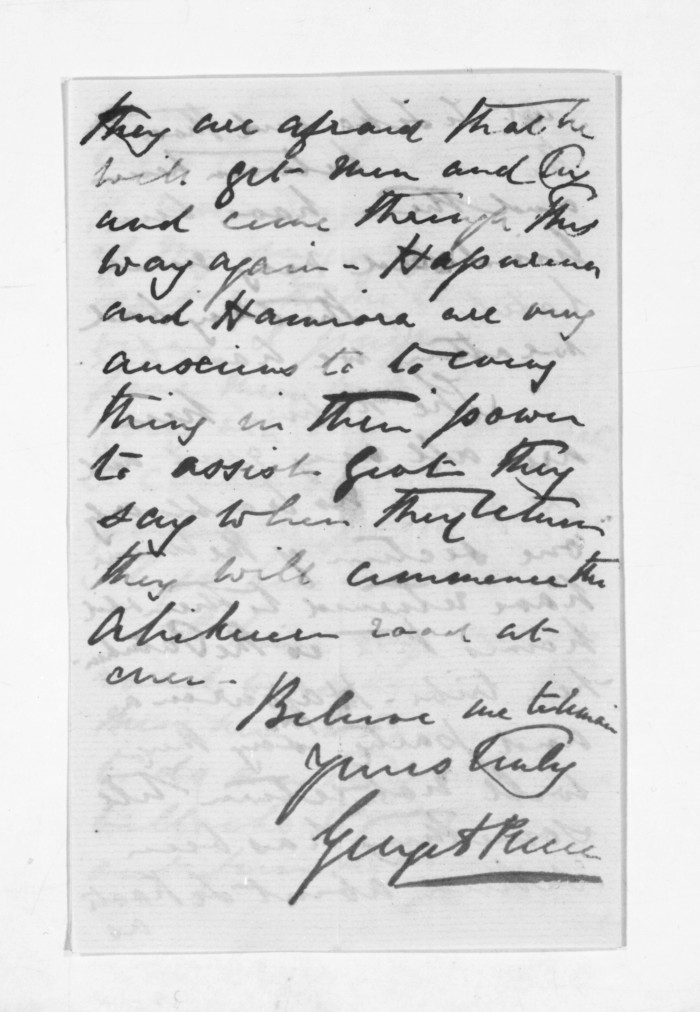 they are afraid that he
will get men and try
and come through this
way again - Hapurona
and Hamiora are very
anxious to to every
thing in their power
to assist Govt they
say when they return
they will commence the
Ahikereru road at
once -
Believe me to remain
Yours truly
George A Preece